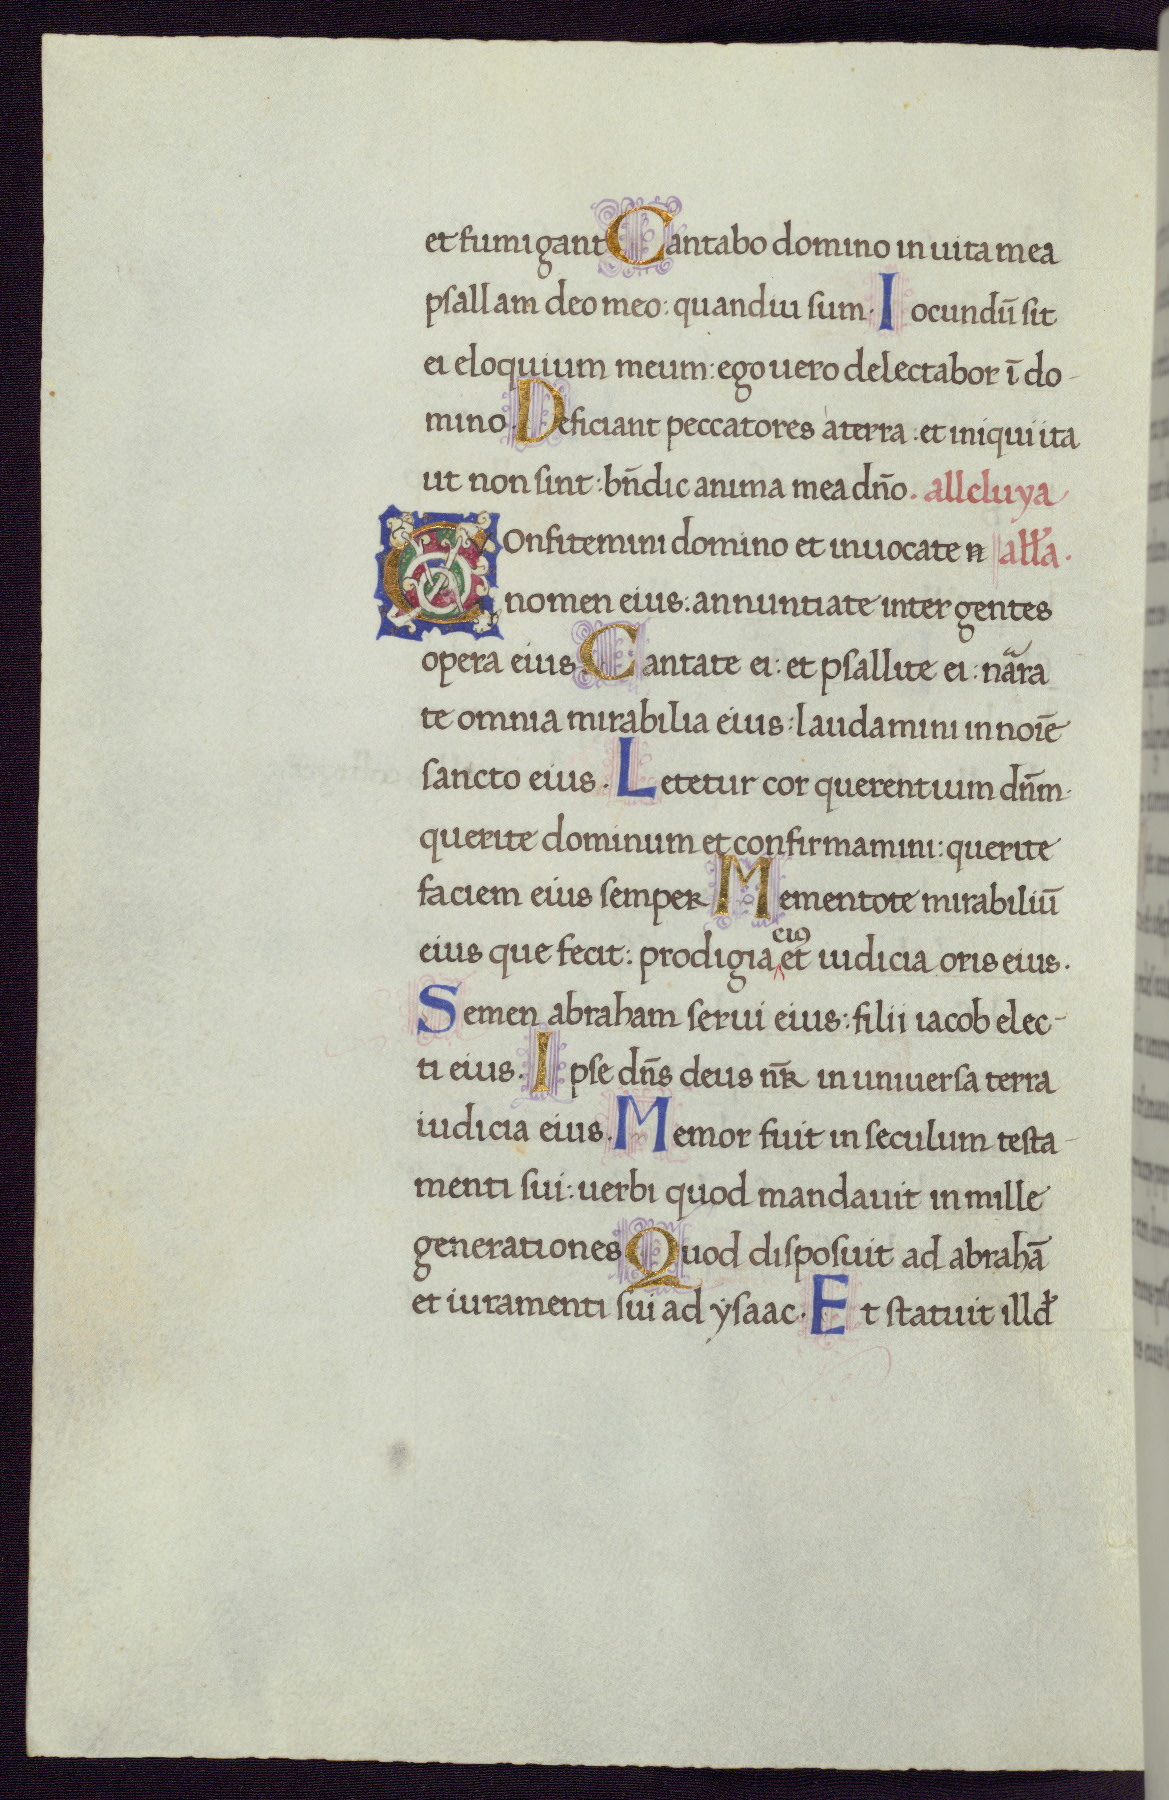 et fumigant Cantabo domino in uita mea
psallam deo meo: quandiu sum. Iocundū sit
ei eloquium meum: ego uero delectabor ī do-
mino. Deficiant peccatores a terra: et iniqui ita
ut non sint: bn̄dic anima mea dn̄o. alleluya
Confitemini domino et inuocate all̄a.
nomen eius: annuntiate inter gentes
opera eius Cantate ei: et psallite ei: narra
te omnia mirabilia eius: laudamini in noīe
sancto eius. Letetur cor querentium dn̄m.
querite dominum et confirmamini: querite
faciem eius semper Mementote mirabiliū
eius que fecit: prodigia eiꝰ et iudicia oris eius.
Semen abraham serui eius: filii iacob elec-
ti eius. Ipse dn̄s deus nr̄ in uniuersa terra
iudicia eius. Memor fuit in seculum testa-
menti sui: uerbi quod mandauit in mille
generationes Quod disposuit ad abrahā
et iuramenti sui ad ẏsaac. Et statuit illd̄